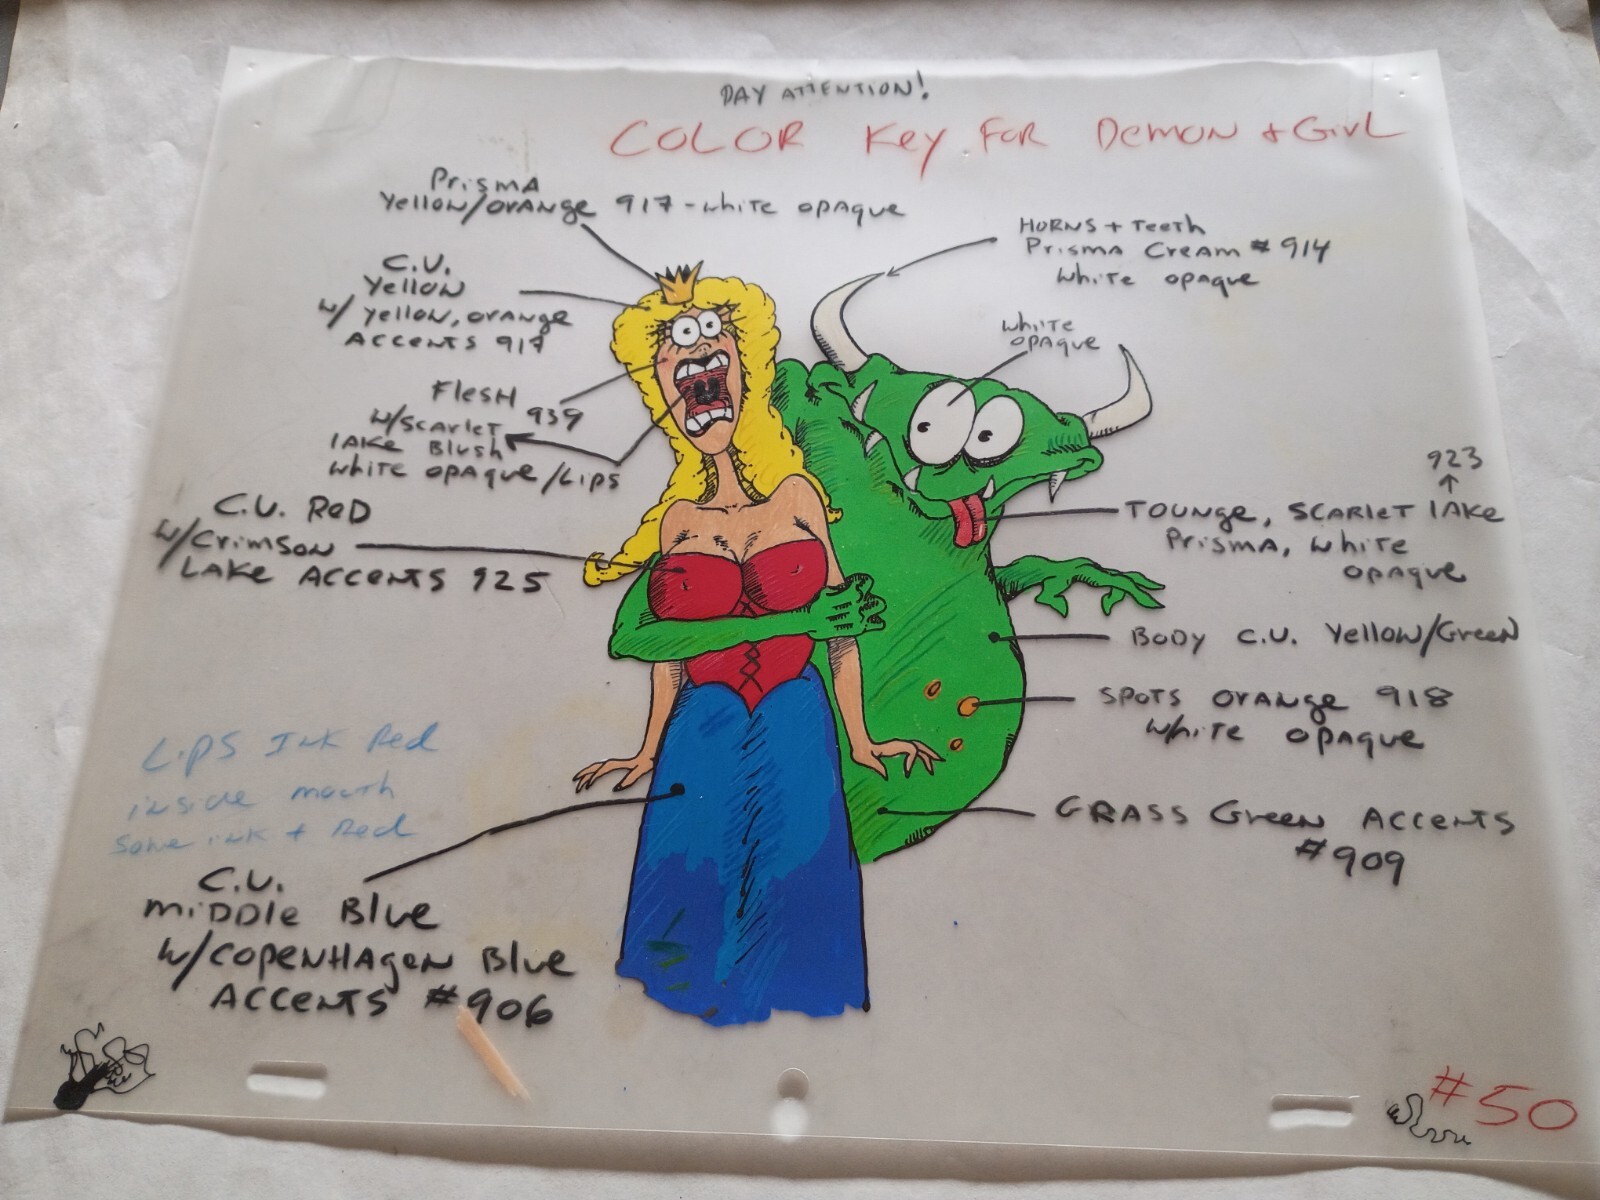 PAY ATTENTION!
COLOR Key FOR DEMON + GirL
Prisma
Yellow/orange 917 - white opaque
C.V.
Yellow
w/ yellow, orange
ACCENTS 917
Flesh
939
w/scarlet
lake Blush
white opaque /Lips
C.V. Red
w/crimson
LAKE ACCENTS 925
Lips Ink Red
inside mouth
some ink + Red
C.V.
middle Blue
w/copenhagen Blue
ACCENTS #906
HORNS + Teeth
Prisma Cream #914
white opaque
white
opaque
923
TOUNge, SCARLET LAKE
Prisma, white
opaque
BODY C.V. Yellow/Green
SPOTS ORANge 918
White opaque
GRASS Green ACCENTS
#909
#50